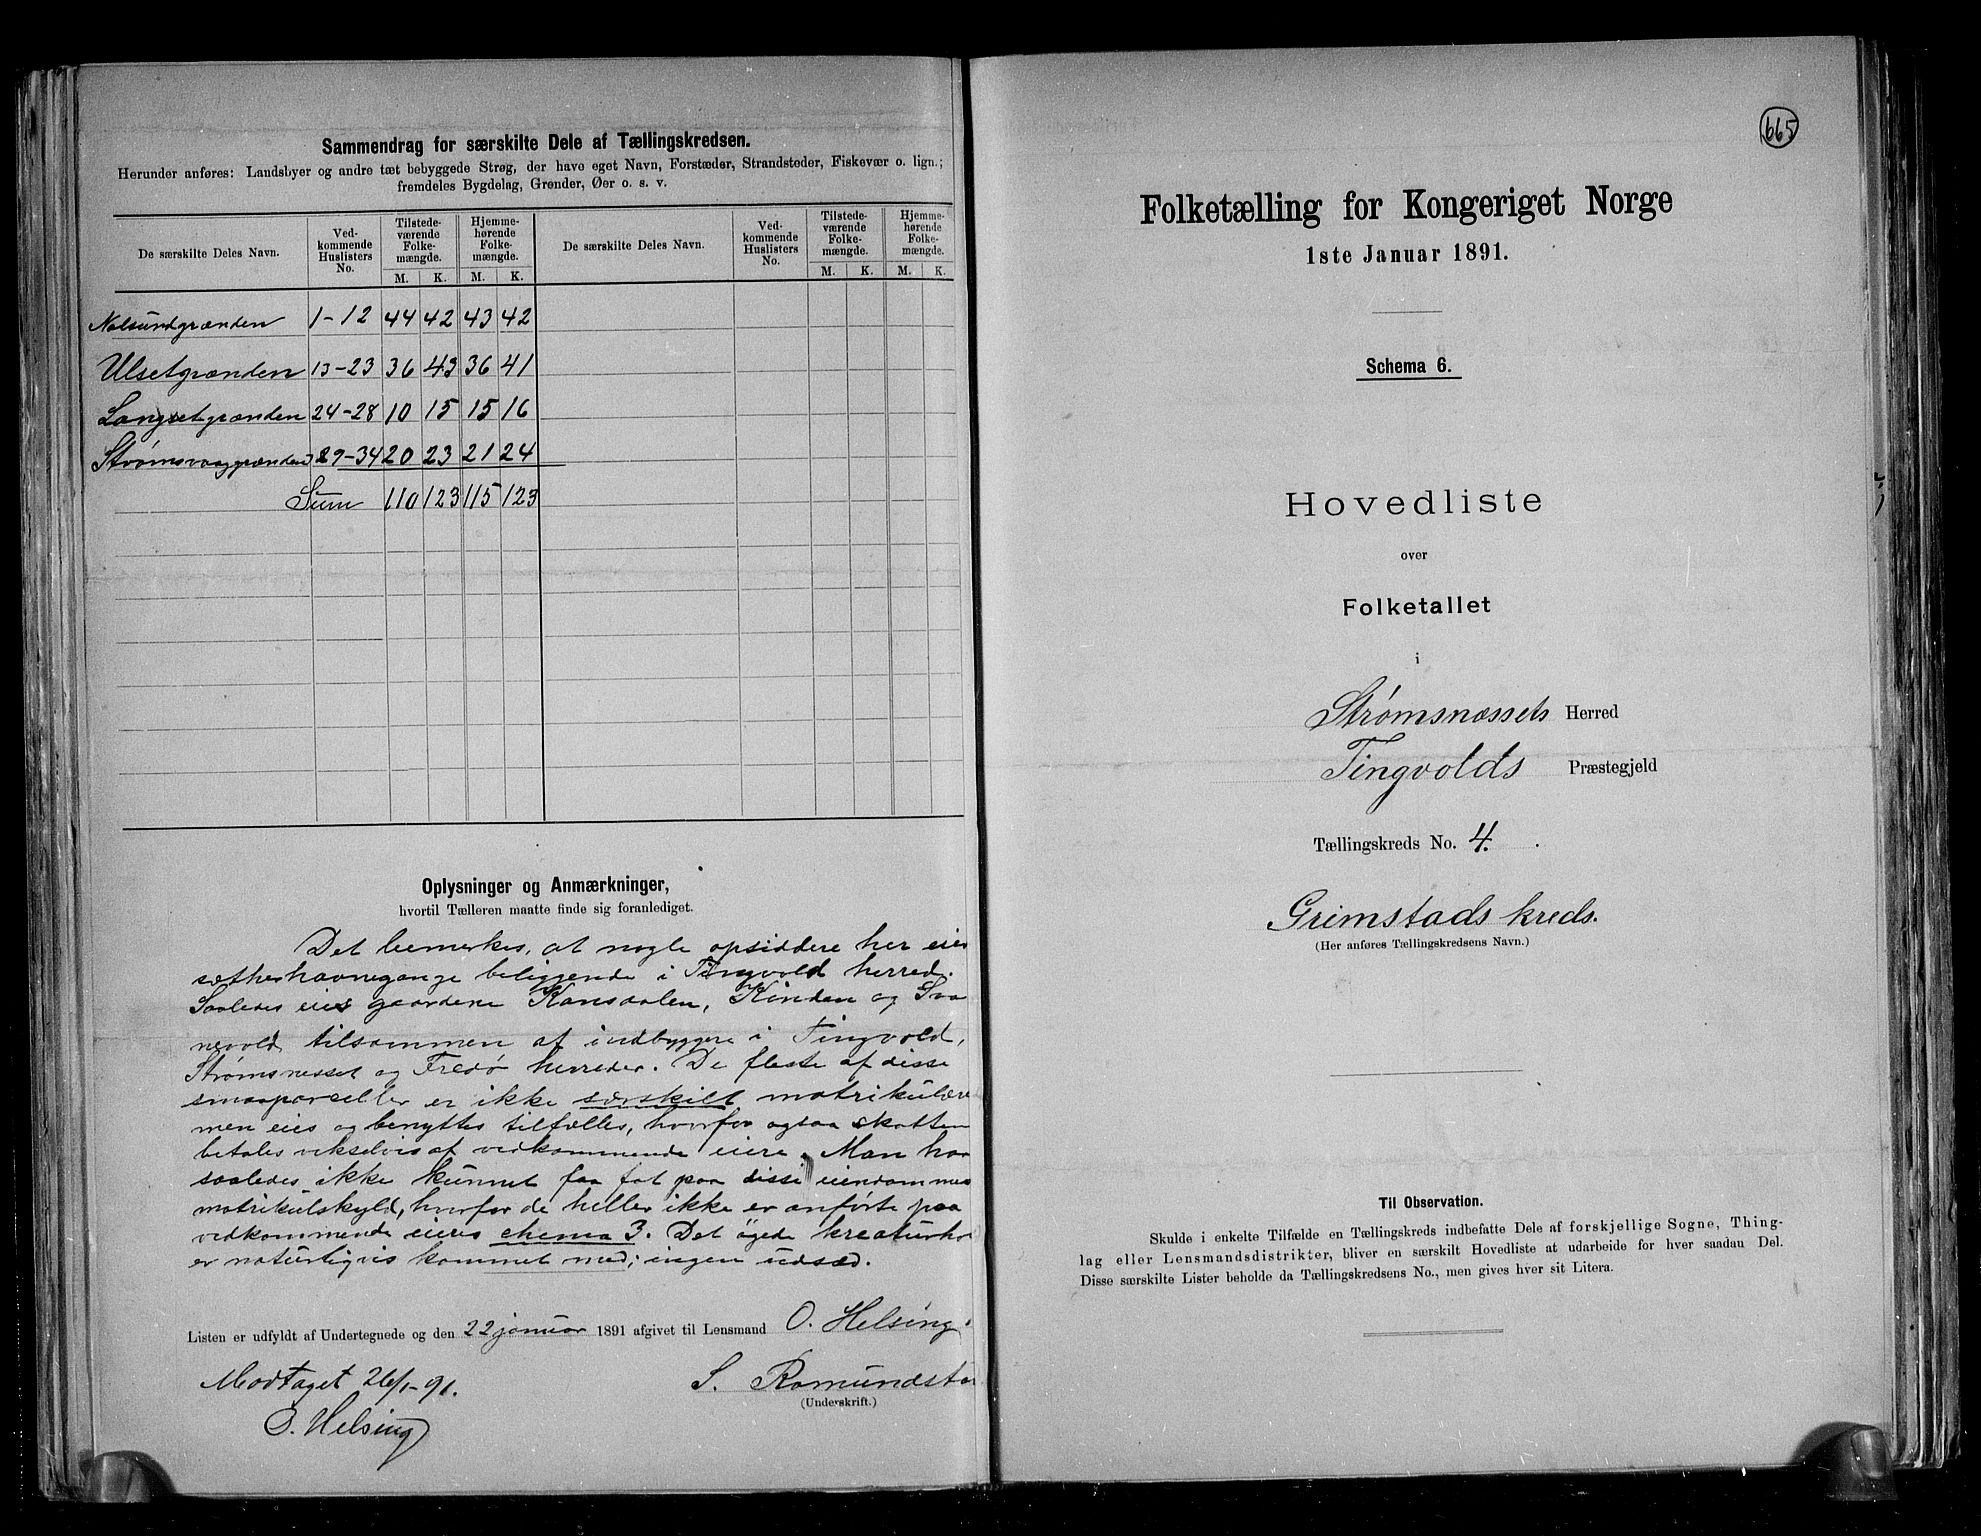 Sammendrag for særskilte Dele af Tællingskredsen.
Herunder anføres: Landsbyer og andre tæt bebyggede Strøg, der have eget Navn, Forstæder, Strandsteder, Fiskevær o. lign.;
fremdeles Bygdelag, Grender, Øer o. s. v.
De særskilte Deles Navn. Ved-kommende Huslisters No. Tilstede-værende Folke-mængde. Hjemme-hørende Folke-mængde. De særskilte Deles Navn. Ved-kommende Huslisters No. Tilstede-værende Folke-mængde. Hjemme-hørende Folke-mængde.
M. K. M. K. M. K. M. K.
Nalsundgrænden 1-12 44 42 43 42
Ulsetgrænden 13-23 36 43 36 41
Langsetgrænden 24-28 10 15 15 16
Strømsvaaggrænden 29-34 20 23 21 24
Sum 110 123 115 123
Oplysninger og Anmærkninger,
hvortil Tælleren maatte finde sig foranlediget.
Det bemerkes, at nogle opsiddere her eier
sæterhavnegange beliggende i Tingvold herred.
Saaledes eies gaardene Kansdalen, Kinden og Sva
nevold tilsammen af indbyggere i Tingvold,
Strømsnesset og Fredø herreder. De fleste af disse
smaaparceller er ikke særskilt matrikulære
men eies og benyttes tilfælles, hvorfor ogsaa skatten
betales vekselvis af vedkommende eiere. Man har
saaledes ikke kunnet faa fat paa disse eiendommes
matrikulskyld, hvorfor de heller ikke er anførte paa
vedkommende eieres chema 3. Det øgede kreaturho
er naturligvis kommet med; ingen udsæd.
Listen er udfyldt af Undertegnede og den 22 januar 1891 afgivet til Lensmand O. Helsing.
Modtaget 26/1-91. S. Romundsta
(Underskrift.)
O. Helsing
665
Folketælling for Kongeriget Norge
1ste Januar 1891.
Schema 6.
Hovedliste
over
Folketallet
i
Strømsnæssets Herred
Tingvolds Præstegjeld
Tællingskreds No. 4.
Grimstads kreds.
(Her anføres Tællingskredsens Navn.)
Til Observation.
Skulde i enkelte Tilfælde en Tællingskreds indbefatte Dele af forskjellige Sogne, Thing-
lag eller Lensmandsdistrikter, bliver en særskilt Hovedliste at udarbeide for hver saadan Del.
Disse særskilte Lister beholde da Tællingskredsens No., men gives hver sit Litera.